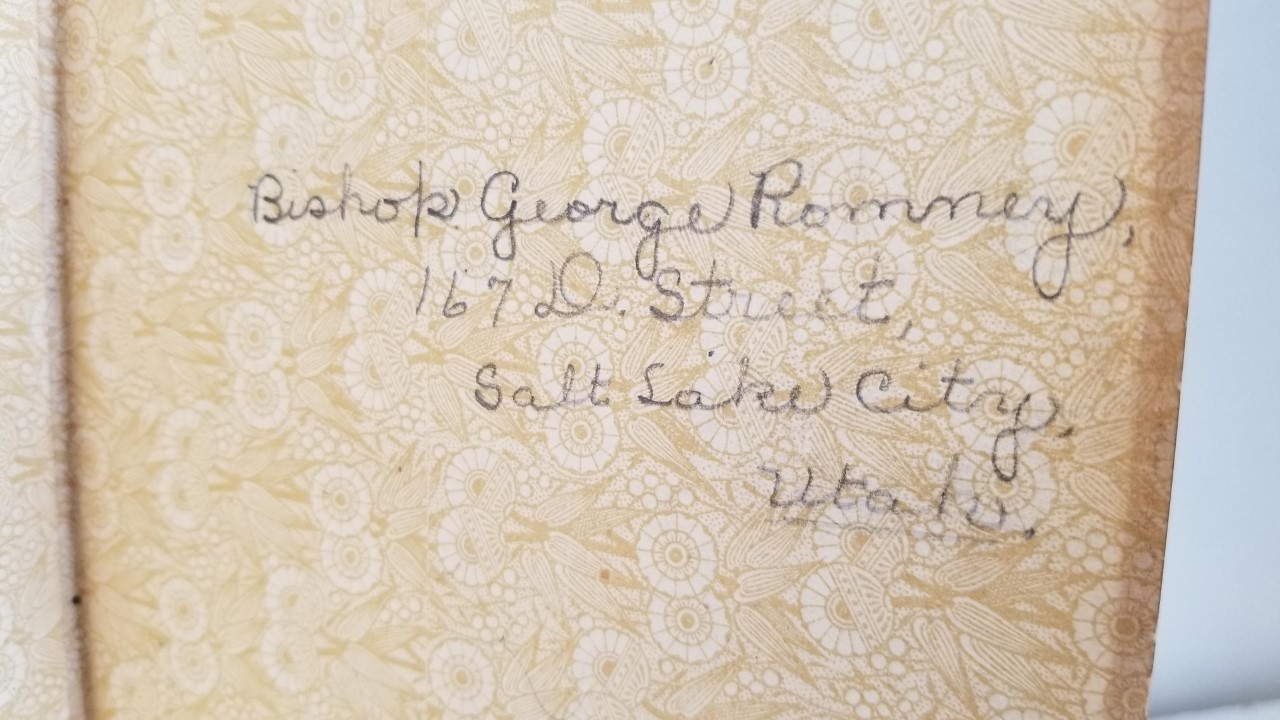 Bishop George Romney,
167 D. Street,
Salt Lake City,
Utah.